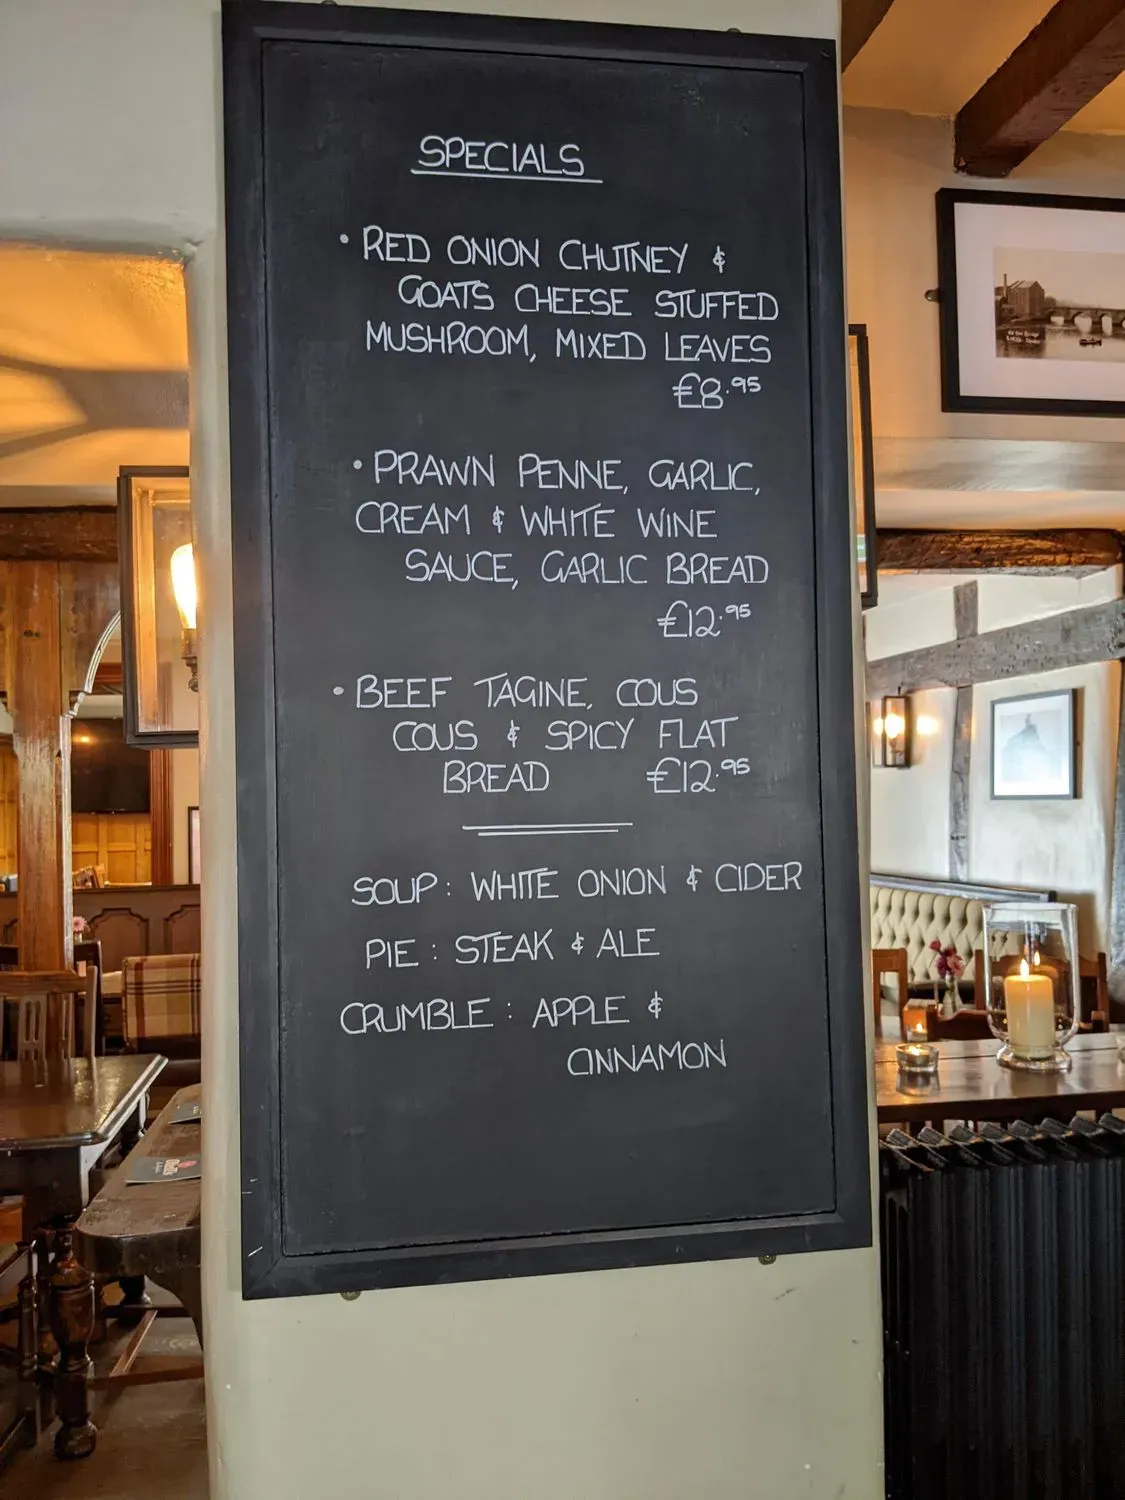 SPECIALS
• RED ONION CHUTNEY &
GOATS CHEESE STUFFED
MUSHROOM, MIXED LEAVES
£8.95
• PRAWN PENNE, GARLIC,
CREAM & WHITE WINE
SAUCE, GARLIC BREAD
£12.95
• BEEF TAGINE, COUS
COUS & SPICY FLAT
BREAD £12.95
SOUP: WHITE ONION & CIDER
PIE: STEAK & ALE
CRUMBLE: APPLE &
CINNAMON